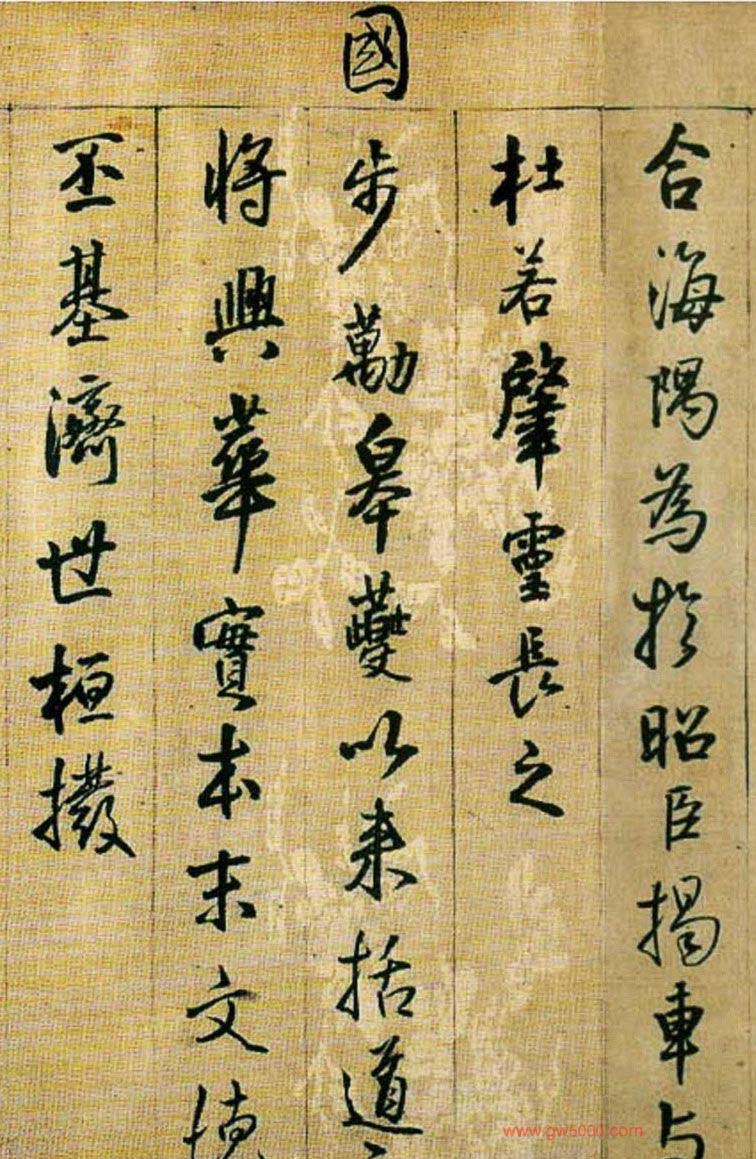 合海隅為於昭臣揭車与
杜若肇靈長之
國步勱皋夔以来括道
将興華實本末文
丕基濟世桓撥
www.gw5000.com